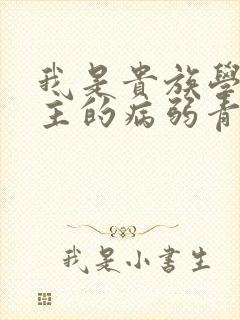 我是貴族學
主的病弱青
我是小書生